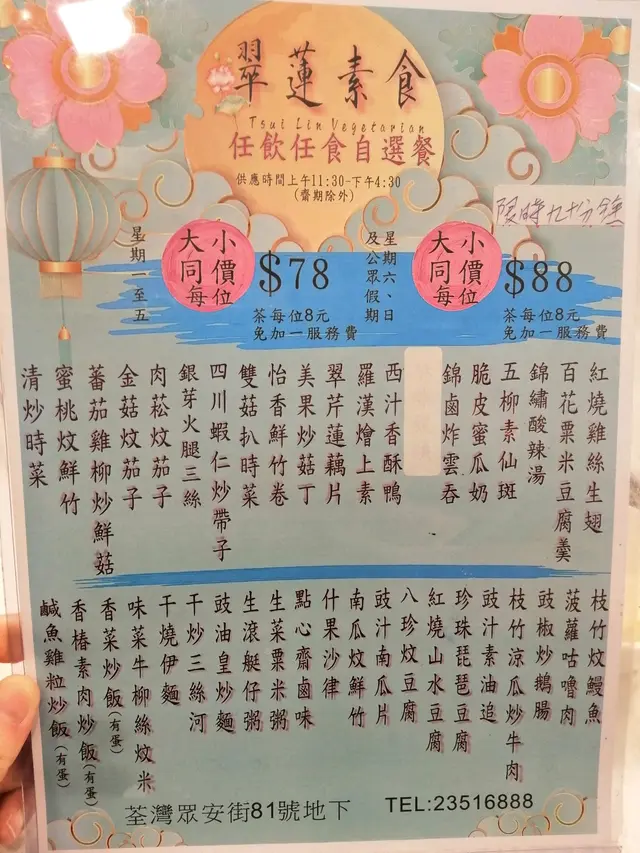 翠蓮素食
Tsui Lin Vegetarian
任飲任食自選餐
供應時間上午11:30-下午4:30
(齋期除外)
限時九十分鐘
星期一至五
大小同價每位
$78
茶每位8元
免加一服務費
星期六、日及公眾假期
大小同價每位
$88
茶每位8元
免加一服務費
紅燒雞絲生翅
百花粟米豆腐羹
錦繡酸辣湯
五柳素仙斑
脆皮蜜瓜奶
錦鹵炸雲吞
西汁香酥鴨
羅漢燴上素
翠芹蓮藕片
美果炒菇丁
怡香鮮竹卷
雙菇扒時菜
四川蝦仁炒帶子
銀芽火腿三絲
肉菘炆茄子
金菇炆茄子
蕃茄雞柳炒鮮菇
蜜桃炆鮮竹
清炒時菜
枝竹炆鰻魚
菠蘿咕嚕肉
豉椒炒鵝腸
枝竹涼瓜炒牛肉
豉汁素油追
珍珠琵琶豆腐
紅燒山水豆腐
八珍炆豆腐
豉汁南瓜片
南瓜炆鮮竹
什果沙律
點心齋鹵味
生菜粟米粥
生滾艇仔粥
豉油皇炒麵
干炒三絲河
干燒伊麵
味菜牛柳絲炆米
香菜炒飯(有蛋)
香椿素肉炒飯(有蛋)
鹹魚雞粒炒飯(有蛋)
荃灣眾安街81號地下
TEL:23516888